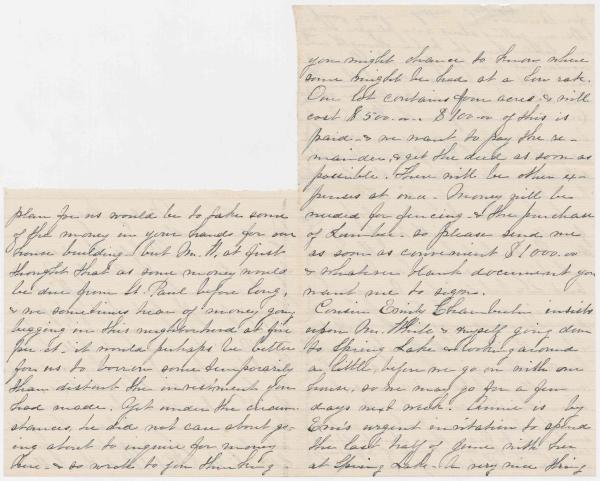 plan for us would be to take some
of the money in your hands for our
house building - but Mr. W. at first
thought that as some money would
be due from St. Paul before long,
& we sometimes hear of money going
begging in this neighborhood at five
per ct. - it would perhaps be better
for us to borrow some temporarily
than disturb the investment you
had made. Yet under the circum-
stances, he did not care about go-
ing about to inquire for money
here - & so wrote to you thinking
you might chance to know where
some might be had at a low rate.
Our lot contains four acres, & will
cost $500.00. $100.00 of this is
paid - & we want to pay the re-
mainder, & get the deed as soon as
possible. There will be other ex-
penses at once. Money will be
needed for fencing & the purchase
of Lumber - so please send me
as soon as convenient $1000.00
& whatever blank document you
want me to sign.
Cousin Emily Chamberlin insists
upon Mr. White & myself going down
to Spring Lake & looking around
a little, before we go on with our
house, so we may go for a few
days next week. Annie is by
Em's urgent invitation to spend
the last half of June with her
at Spring Lake - A very nice thing